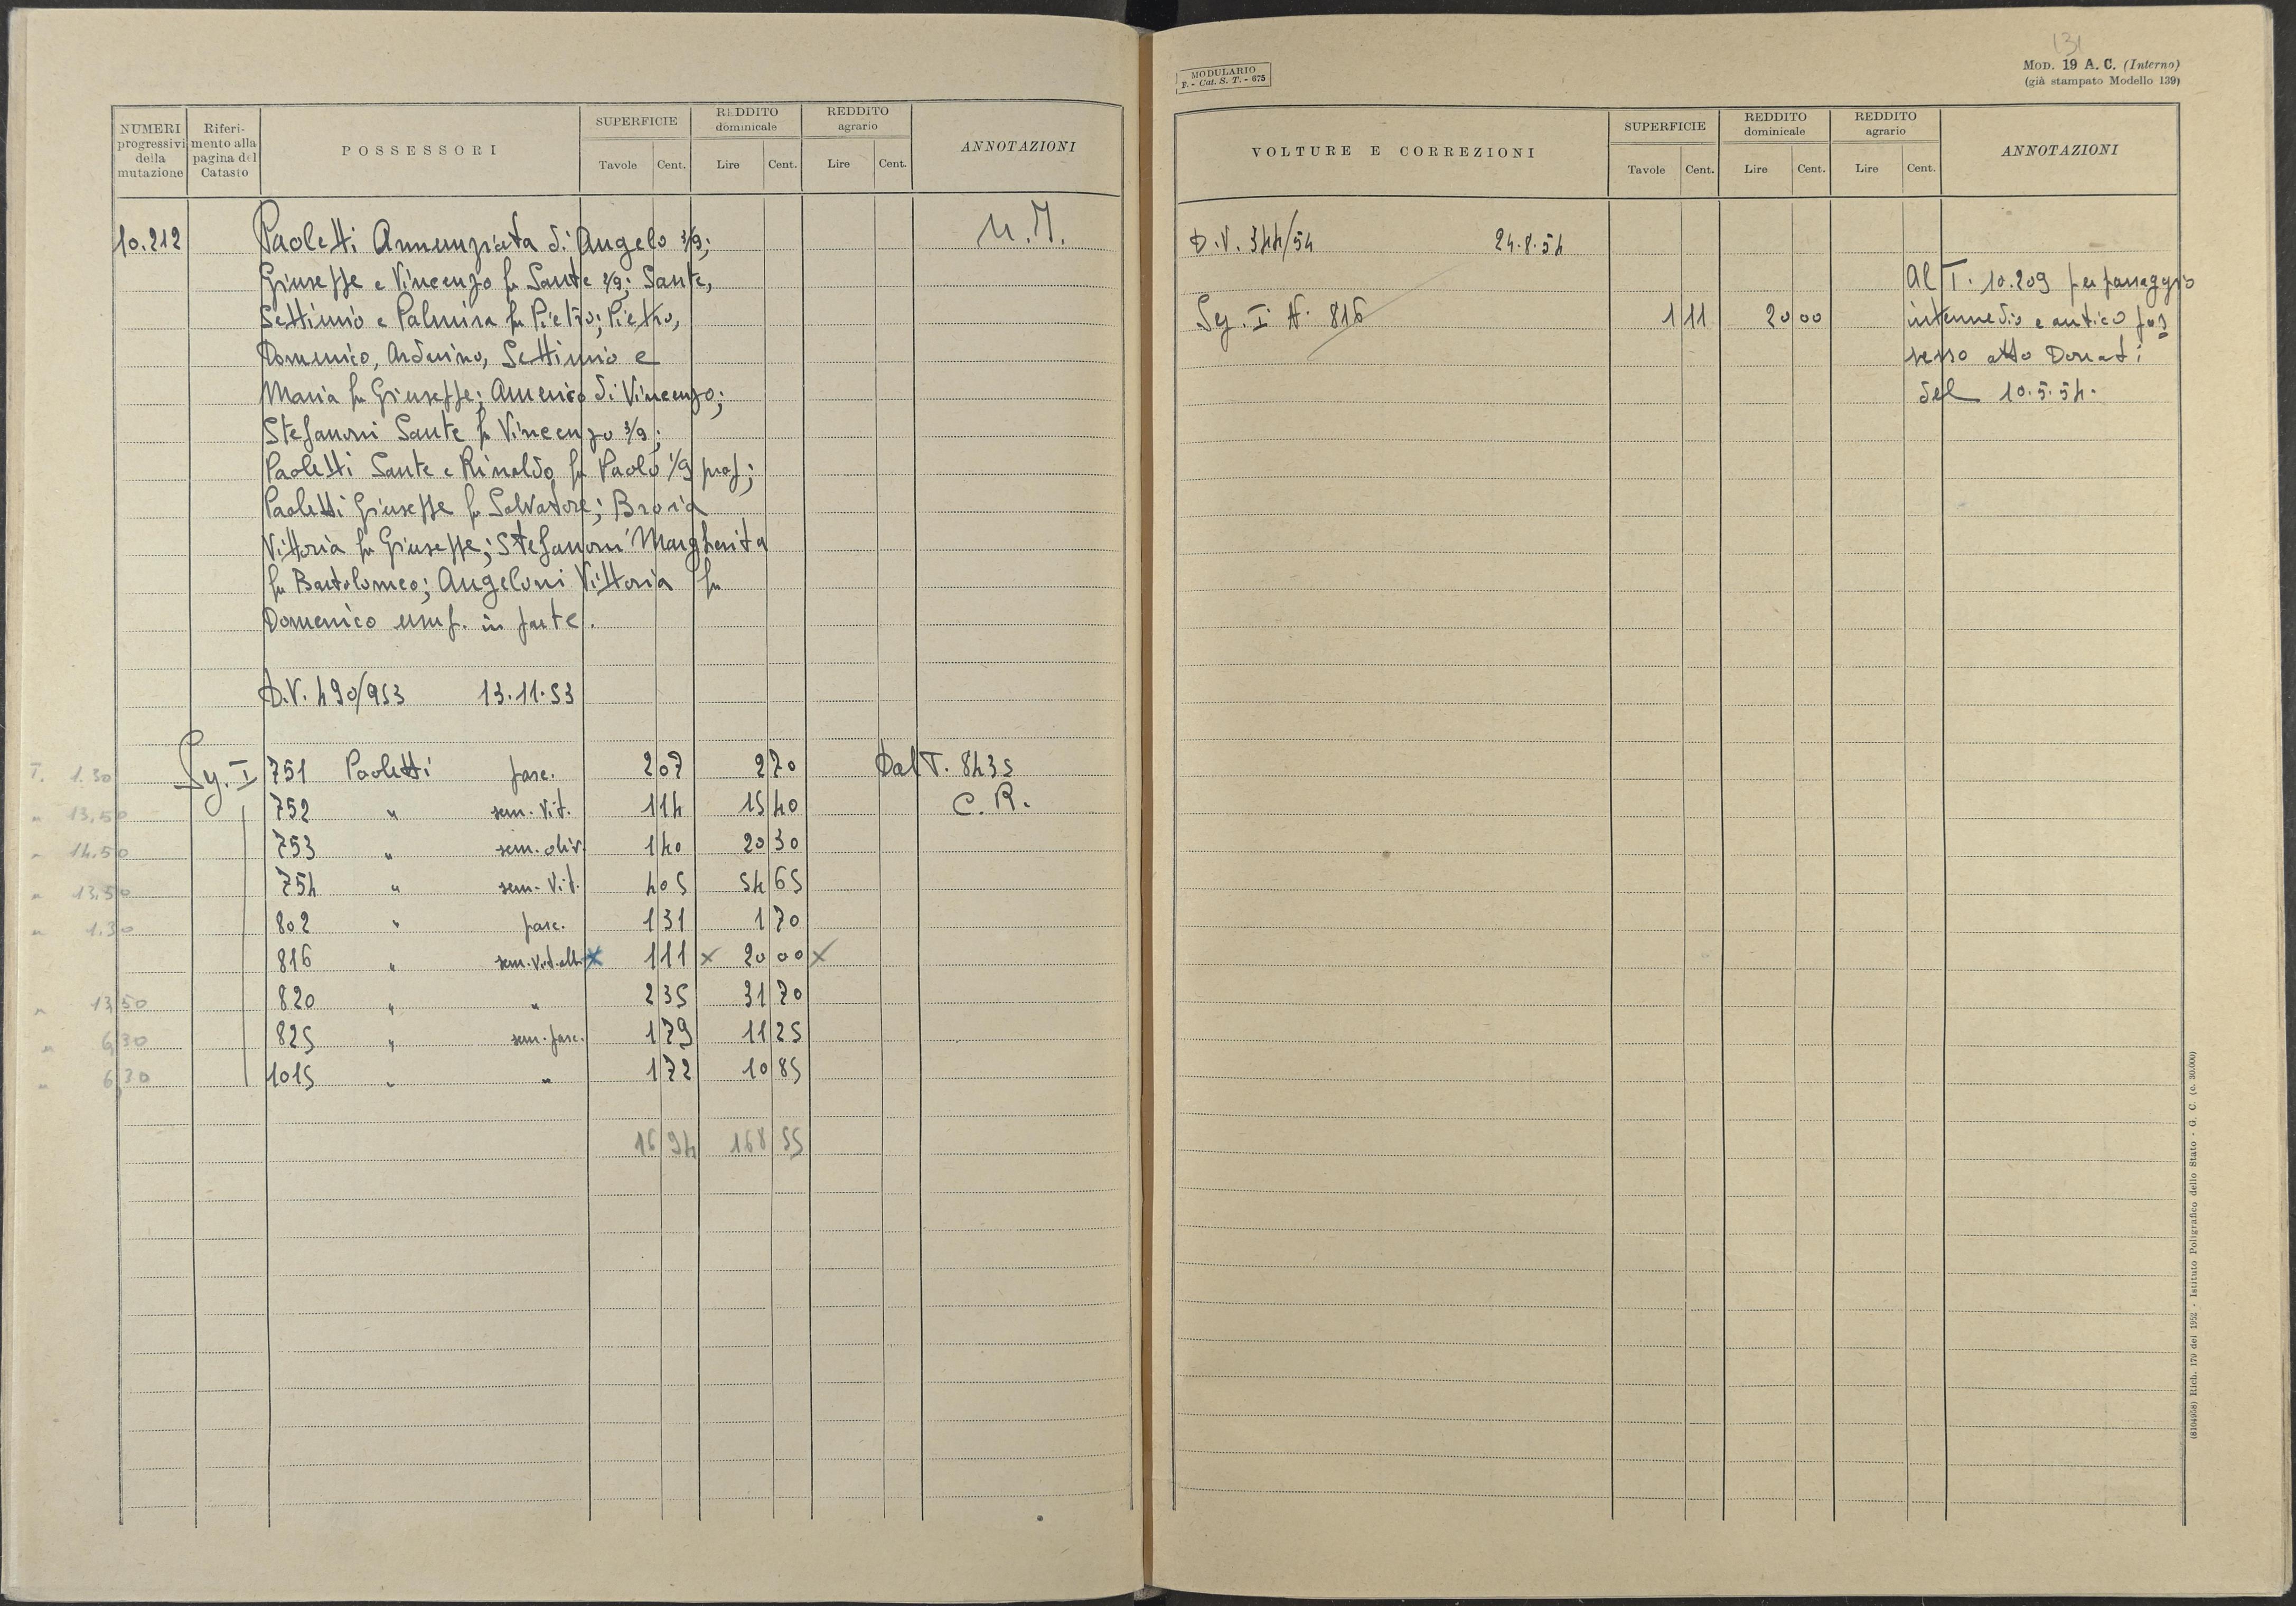 NUMERI progressivi della mutazione
Riferimento alla pagina del Catasto
POSSESSORI
SUPERFICIE
Tavole Cent.
REDDITO dominicale
Lire Cent.
REDDITO agrario
Lire Cent.
ANNOTAZIONI
10.212 Paoletti Annunziata di Angelo 3/9; U.I.
Giuseppe e Vincenzo fu Sante 2/9; Sante,
Settimio e Palmira fu Pietro; Pietro,
Domenico, Arduino, Settimio e
Maria fu Giuseppe; Americo di Vincenzo;
Stefanoni Sante fu Vincenzo 3/9;
Paoletti Sante e Rinaldo fu Paolo 1/9 prop;
Paoletti Giuseppe fu Salvatore; Brovia
Vittoria fu Giuseppe; Stefanoni Margherita
fu Bartolomeo; Angeloni Vittoria fu
Domenico usuf. in parte.
D.V. 490/953 13.11.53
T. 1.30 Sez. I 751 Paoletti pasc. 2 07 2 70 Dal T. 8435
" 13,50 752 " sem. vit. 1 14 15 40 C.R.
" 14.50 753 " sem. oliv. 1 40 20 30
" 13,50 754 " sem. vit. 4 05 54 65
" 1.30 802 " pasc. 1 31 1 70
816 " sem. vit. alb. x 1 11 x 20 00 x
" 13,50 820 " " 2 35 31 70
" 6,30 825 " sem. pasc. 1 79 11 25
" 6,30 1015 " " 1 72 10 85
16 94 168 55
MODULARIO
F. - Cat. S. T. - 675
131
MOD. 19 A. C. (Interno)
(già stampato Modello 139)
VOLTURE E CORREZIONI
SUPERFICIE
Tavole Cent.
REDDITO dominicale
Lire Cent.
REDDITO agrario
Lire Cent.
ANNOTAZIONI
D.V. 344/54 24.8.54
Al T. 10.209 per passaggio
Sez. I N. 816 1 11 20 00 intermedio e antico pos
sesso atto Donati
del 10.5.54.
(8104958) Rich. 170 del 1952 - Istituto Poligrafico dello Stato - G. C. (c. 30.000)